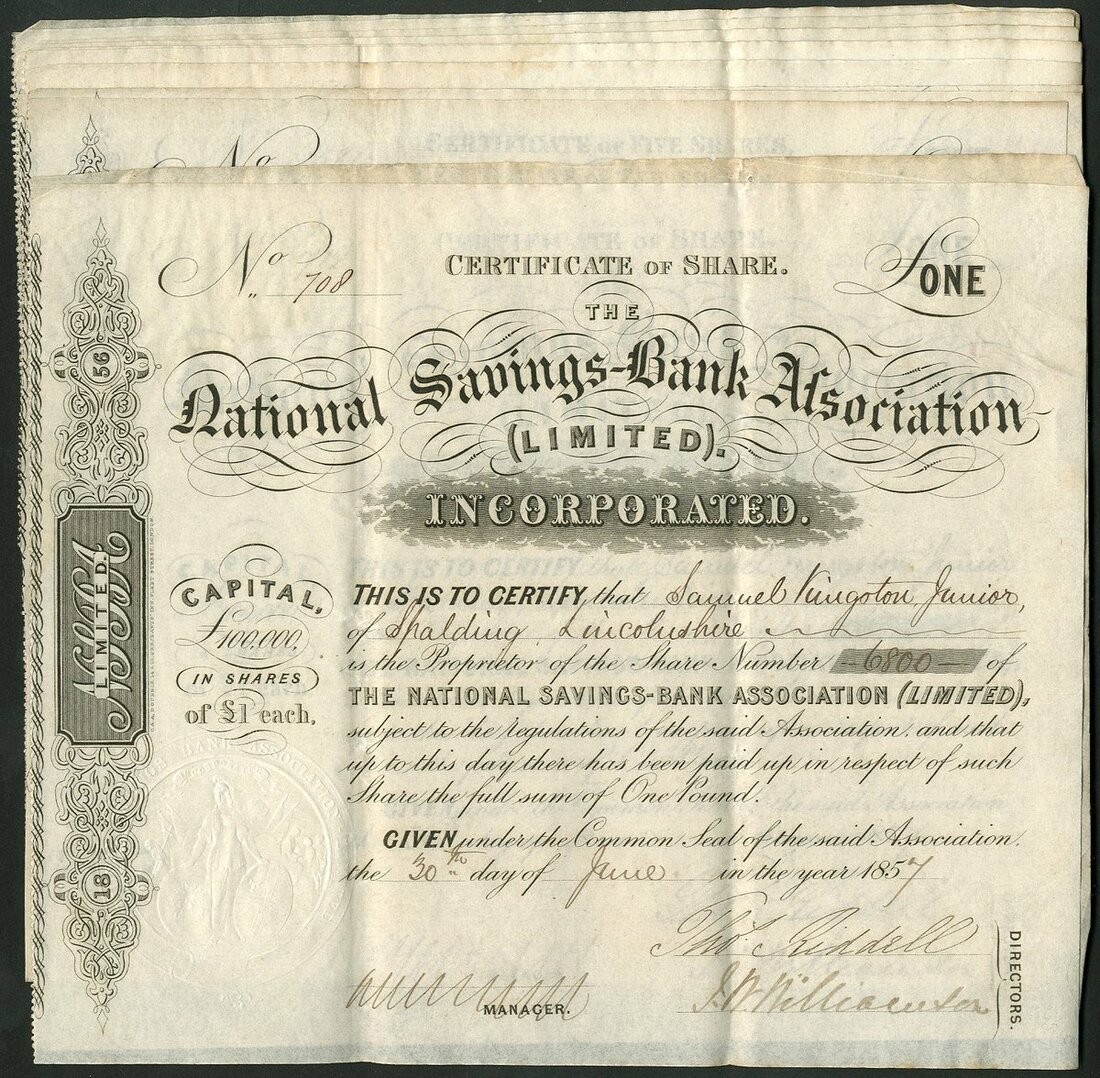 No
CERTIFICATE OF FIVE SHARES.
No 708
CERTIFICATE OF SHARE.
£ONE
THE
National Savings-Bank Association
(LIMITED).
INCORPORATED.
56
NSBA
LIMITED.
18
CAPITAL,
£100,000,
IN SHARES
of £1 each,
THIS IS TO CERTIFY, that Samuel Kingston Junior,
of Spalding Lincolnshire
is the Proprietor of the Share Number -6800- of
THE NATIONAL SAVINGS-BANK ASSOCIATION (LIMITED),
subject to the regulations of the said Association, and that
up to this day there has been paid up in respect of such
Share the full sum of One Pound.
GIVEN under the Common Seal of the said Association,
the 30th day of June in the year 1857
BANK ASSOCIATION
Thos. Riddell
J. W. Williamson
MANAGER.
DIRECTORS.